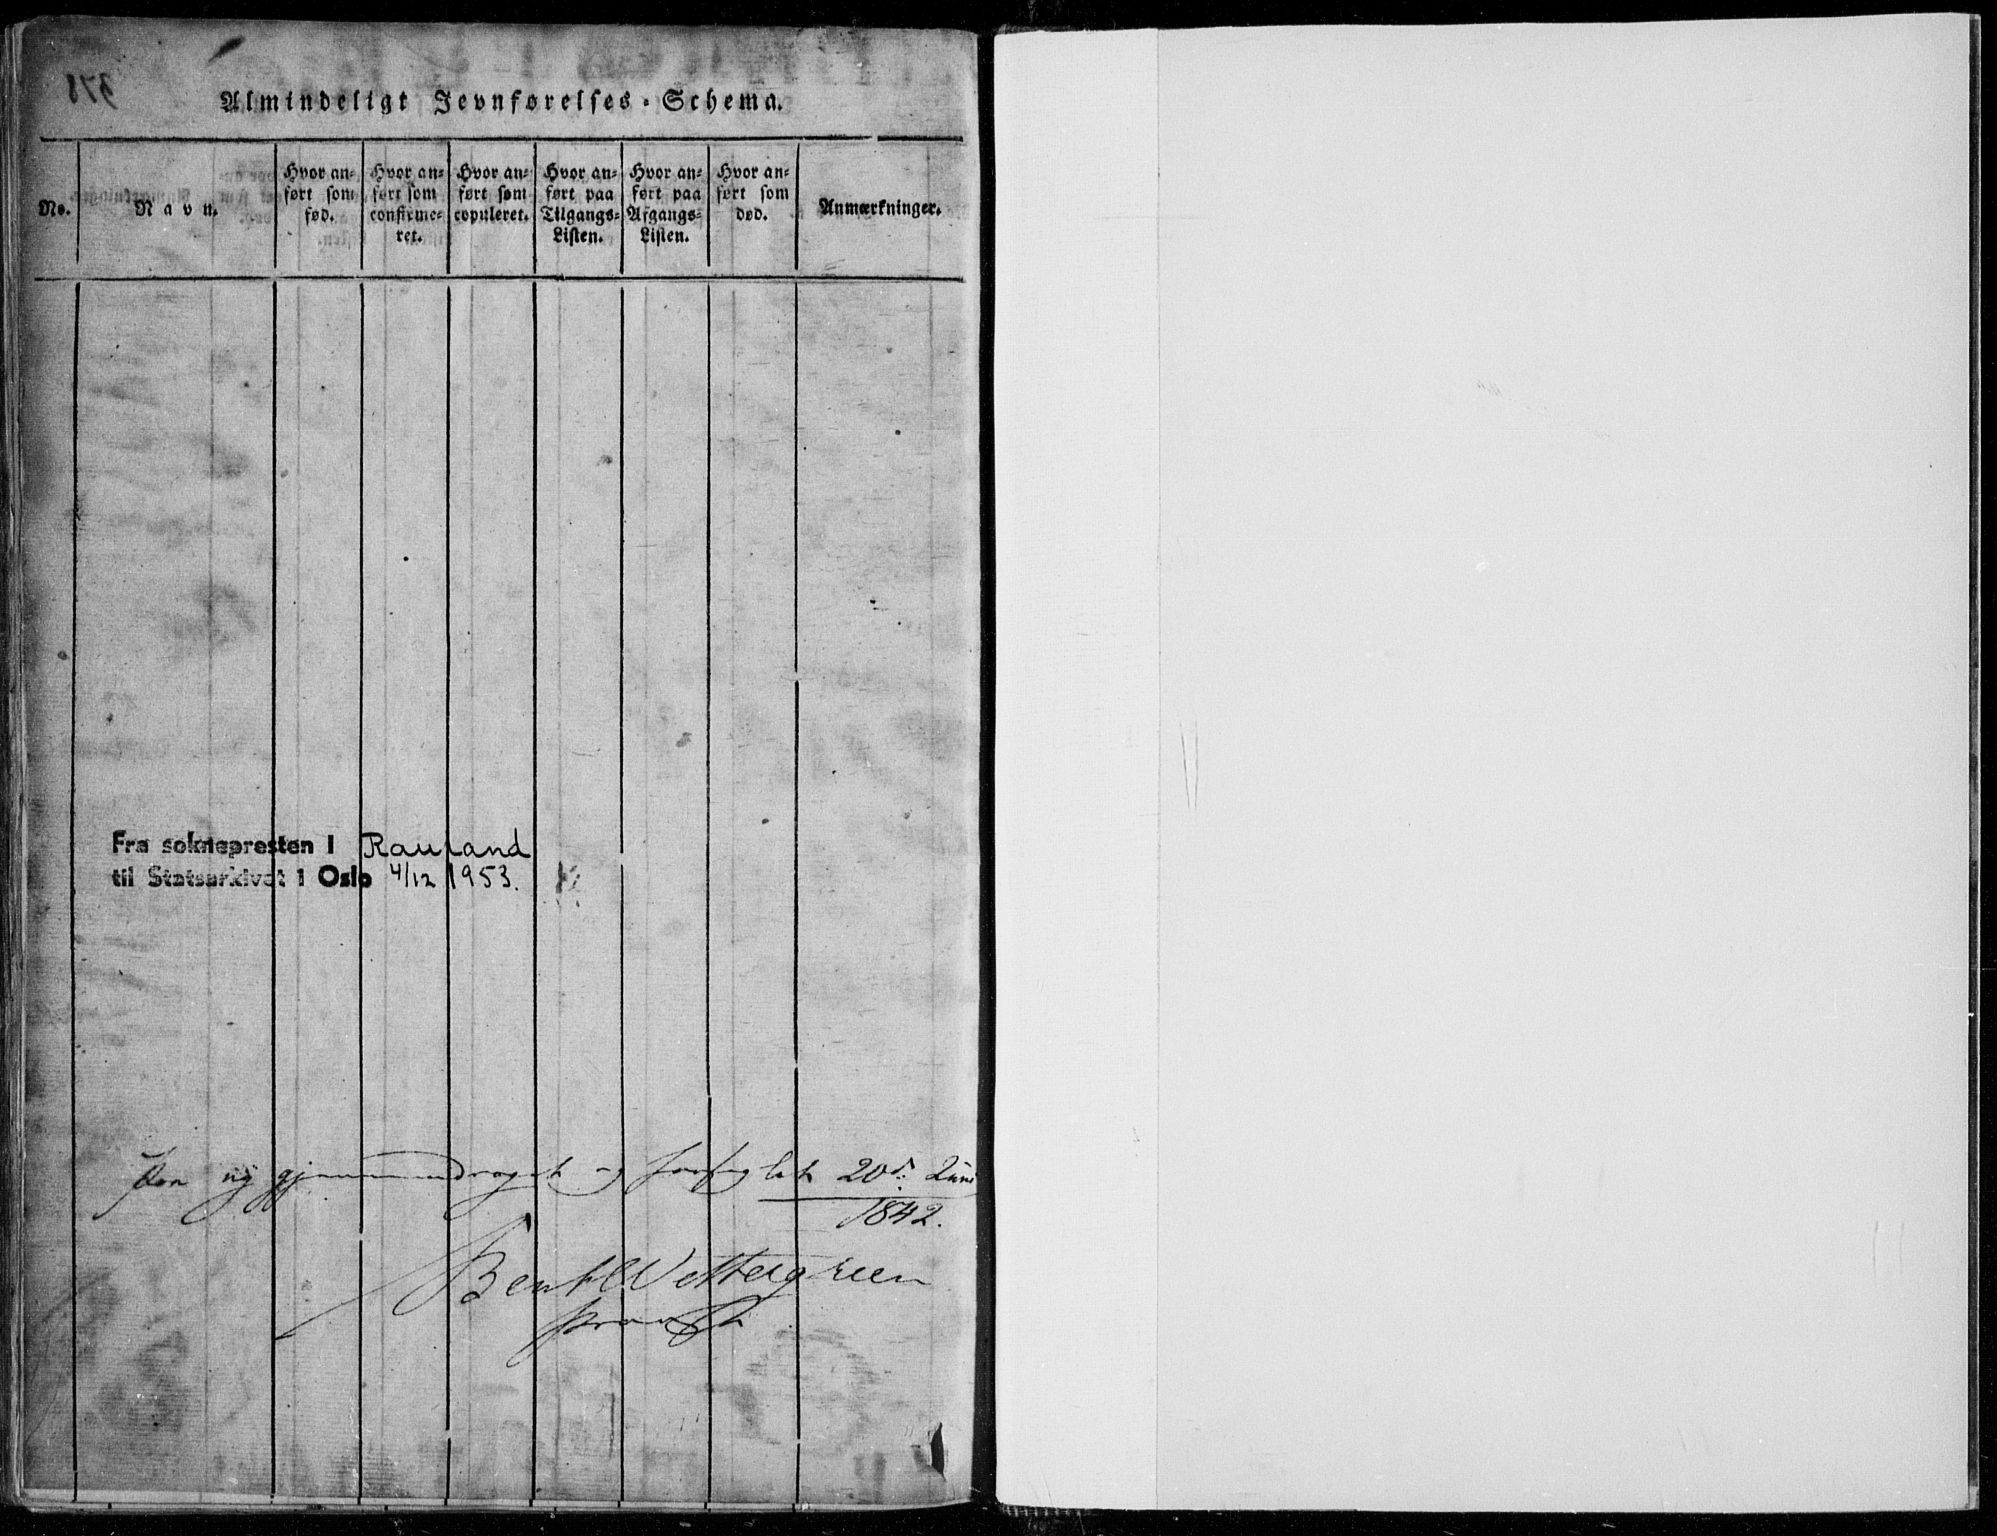 Almindeligt Jevnførelses-Schema.
No.
Navn.
Hvor an-
ført som
fød.
Hvor an-
ført som
confirme-
ret.
Hvor an-
ført som
copuleret.
Hvor an-
ført paa
Tilgangs-
Listen.
Hvor an-
ført paa
Afgangs-
Listen.
Hvor an-
ført som
død.
Anmærkninger.
Fra soknepresten i Rauland
til Statsarkivet i Oslo 4/12 1953.
Paa ny gjennemdraget og forseglet 20de Juni
1842.
Bent Wettergreen
Provst